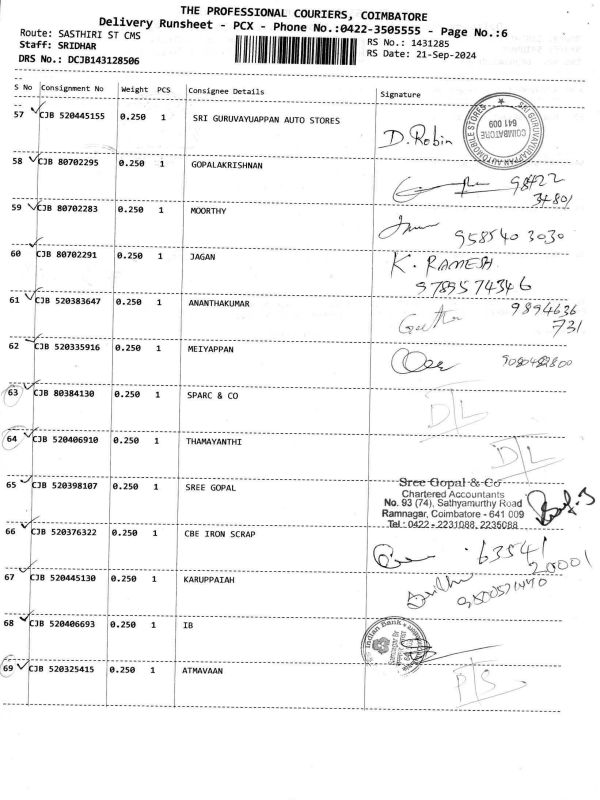 THE PROFESSIONAL COURIERS, COIMBATORE
Delivery Runsheet - PCX - Phone No.:0422-3505555 - Page No.:6
Route: SASTHIRI ST CMS
Staff: SRIDHAR
DRS No.: DCJB143128506
RS No.: 1431285
RS Date: 21-Sep-2024
S No Consignment No Weight PCS Consignee Details Signature
57 CJB 520445155 0.250 1 SRI GURUVAYUAPPAN AUTO STORES
D. Robin
SRI GURUVAYURAPPAN AUTOMOBILE STORES
COIMBATORE
641 009
58 CJB 80702295 0.250 1 GOPALAKRISHNAN
98422
34801
59 CJB 80702283 0.250 1 MOORTHY
958540 3030
60 CJB 80702291 0.250 1 JAGAN
K. RAMESH
9789574346
61 CJB 520383647 0.250 1 ANANTHAKUMAR
9894636
731
62 CJB 520335916 0.250 1 MEIYAPPAN
63 CJB 80384130 0.250 1 SPARC & CO
D/L
64 CJB 520406910 0.250 1 THAMAYANTHI
D/L
65 CJB 520398107 0.250 1 SREE GOPAL
Sree Gopal & Co
Chartered Accountants
No. 93 (74), Sathyamurthy Road
Ramnagar, Coimbatore - 641 009
Tel : 0422 - 2231088, 2235088
66 CJB 520376322 0.250 1 CBE IRON SCRAP
63541
20001
67 CJB 520445130 0.250 1 KARUPPAIAH
68 CJB 520406693 0.250 1 IB
Indian Bank
69 CJB 520325415 0.250 1 ATMAVAAN
P/S